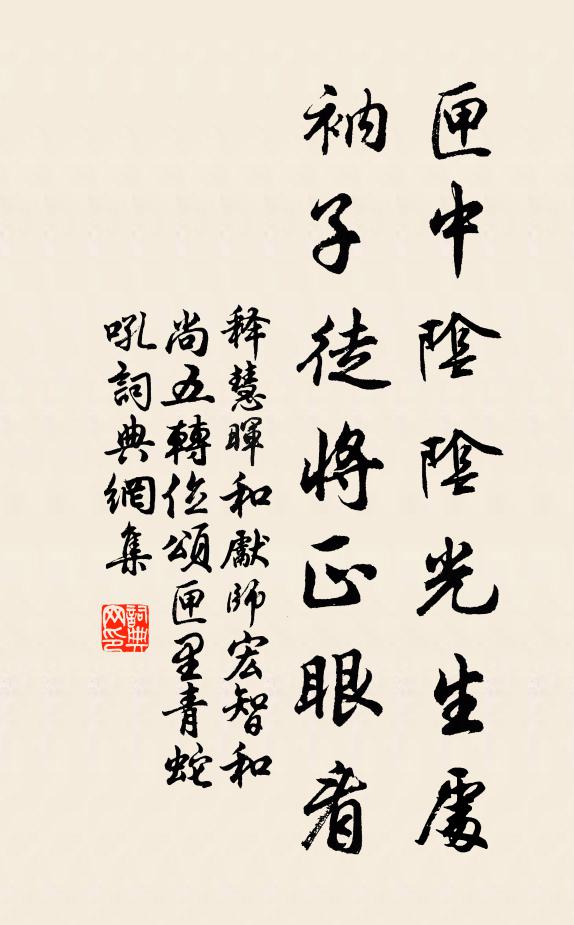 匣中陰陰光生處
衲子徒將正眼看
释慧暉和獻師宏智和
尚五轉位頌匣里青蛇
吼詞典網集
詞典
网印